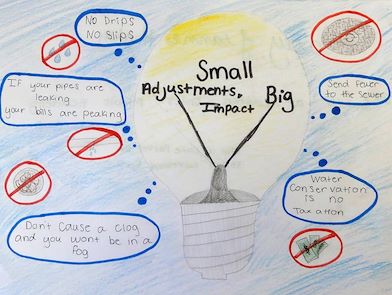 NO Drips
NO Slips
IF your pipes are
leaking
your bills are peaking
Small
Adjustments,
Big
Impact
Send Fewer
to the Sewer
Water
Conservation
IS no
Tax ation
Dont Cause a Clog
and you wont be in a
fog